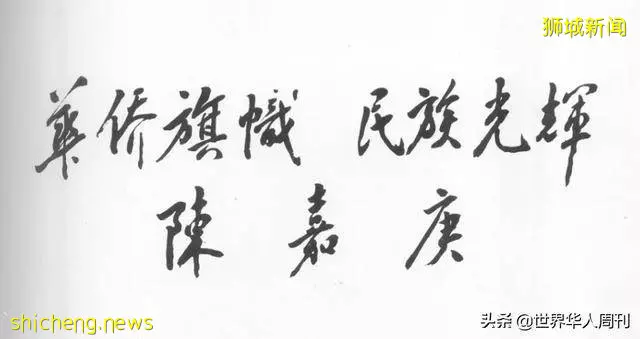 狮城新闻
華侨旗幟 民族光輝
陳嘉庚
shicheng.news
头条@世界华人周刊